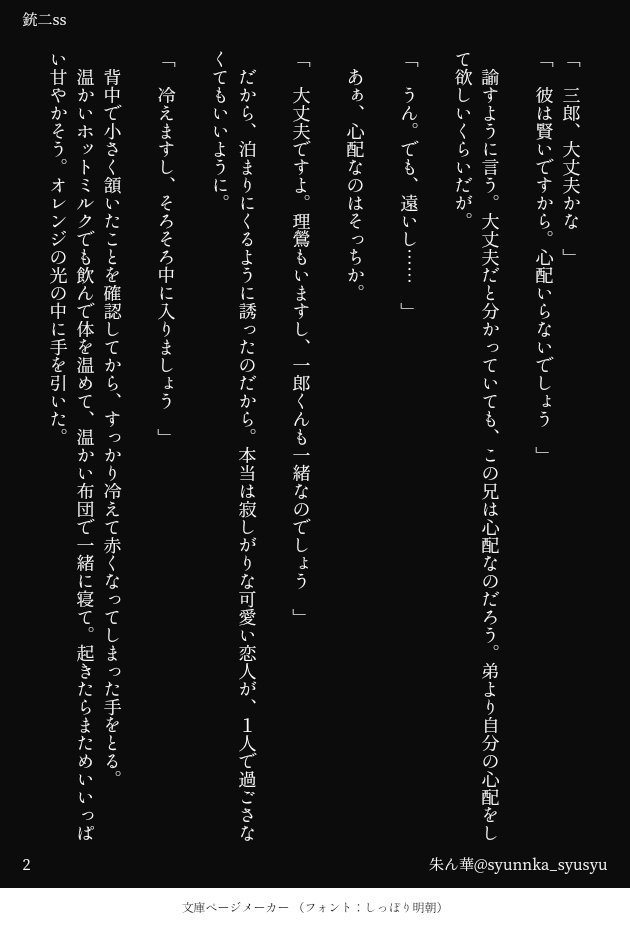 銃二ss
「　三郎、大丈夫かな　」
「　彼は賢いですから。心配いらないでしょう　」
　諭すように言う。大丈夫だと分かっていても、この兄は心配なのだろう。弟より自分の心配をし
て欲しいくらいだが。
「　うん。でも、遠いし……　」
　あぁ、心配なのはそっちか。
「　大丈夫ですよ。理鶯もいますし、一郎くんも一緒なのでしょう　」
　だから、泊まりにくるように誘ったのだから。本当は寂しがりな可愛い恋人が、１人で過ごさな
くてもいいように。
「　冷えますし、そろそろ中に入りましょう　」
　背中で小さく頷いたことを確認してから、すっかり冷えて赤くなってしまった手をとる。
　温かいホットミルクでも飲んで体を温めて、温かい布団で一緒に寝て。起きたらまためいいっぱ
い甘やかそう。オレンジの光の中に手を引いた。
2
朱ん華@syunnka_syusyu
文庫ページメーカー（フォント：しっぽり明朝）